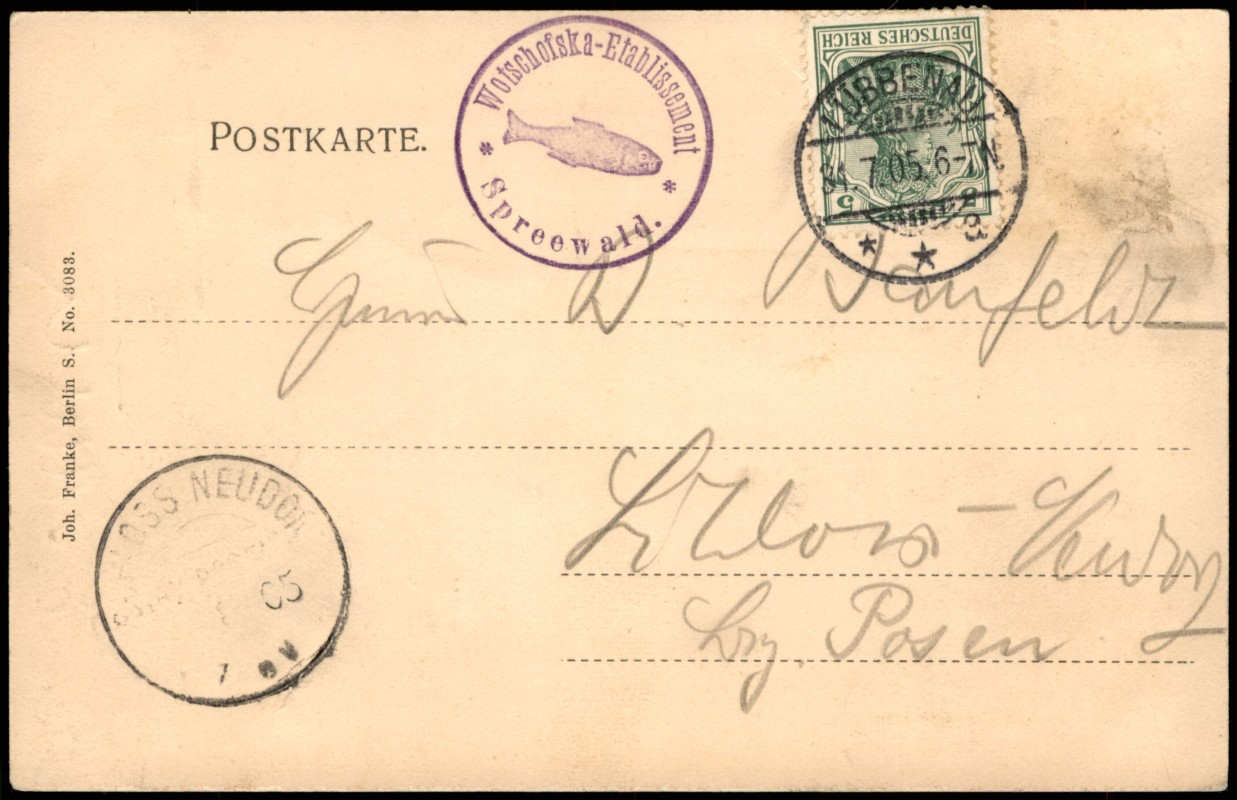 POSTKARTE.
Wotschofska-Etablissement
* Spreewald. *
DEUTSCHES REICH
5 5
LÜBBENAU
7.05.6-7N.
* *
Herrn
Joh. Franke, Berlin S. No. 3083.
SCHLOSS NEUDOR
05
7 8 V
Schloss - Neudorf
Bez. Posen